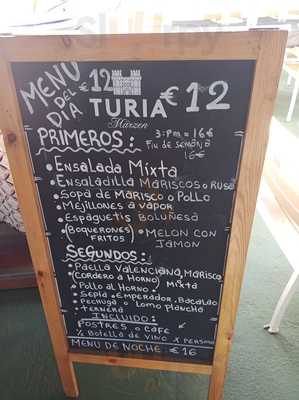 MENU DEL DIA
€12
TURIA
Märzen
€12
3:P.m = 16€
Fiu de Semana
16€
PRIMEROS:
•Ensalada Mixta
•Ensaladilla Mariscos o Rusa
•Sopa de Marisco o Pollo
•Mejillones a vapor
•Espaguetis Boluñesa
•(Boquerones fritos) •Melon con Jamon
SEGUNDOS:
•Paella Valenciana, Marisco
(Cordero a Horno) Mixta
•Pollo al Horno
•Sepia •Emperador •Bacalao
•Pechuga o Lomo Plancha
•Ternera
INCLUIDO:
Postres o Cafe
½ Botella de Vino x Persona
MENU DE NOCHE €16